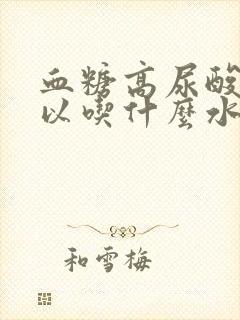 血糖高尿酸
以喫什麼水
和雪梅